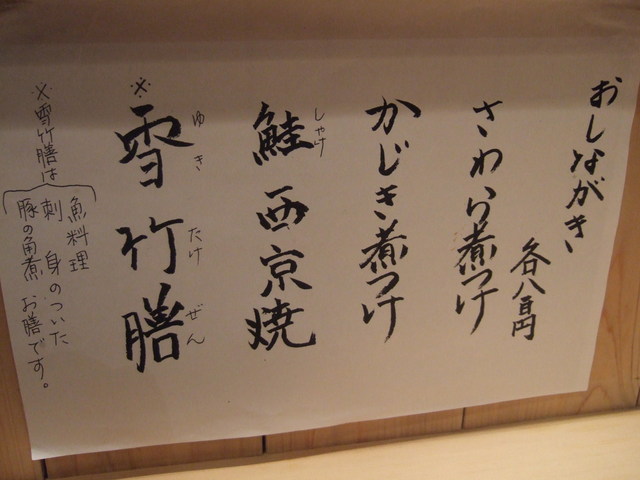 おしながき
各八百円
さわら煮つけ
かじき煮つけ
鮭西京焼
しゃけ
※雪竹膳
ゆきたけぜん
※雪竹膳は
魚料理
刺身のついた
豚の角煮 お膳です。